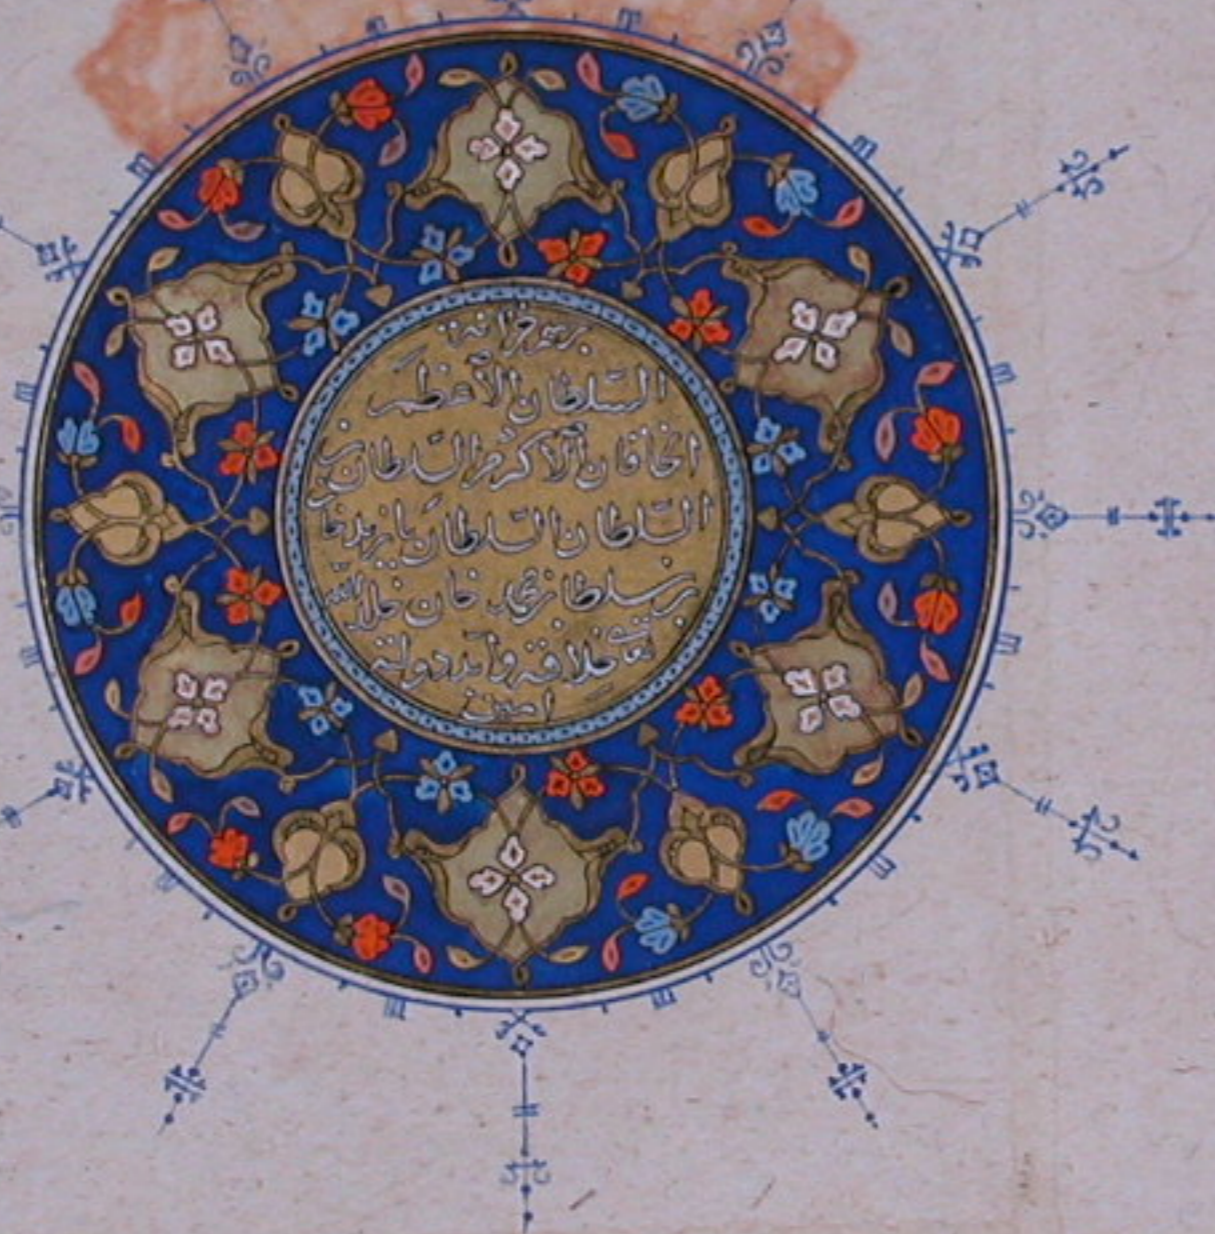 برسم خزانة
السلطان الأعظم
الخاقان الأكرم السلطان بن
السلطان السلطان بايزيد خان
بن سلطان محمد خان خلد الله
تعالى خلافته وأبد دولته
امين